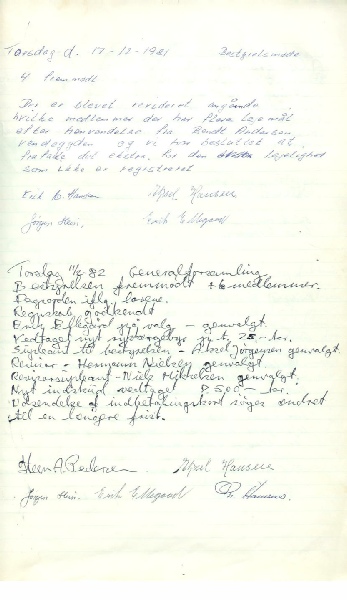 Torsdag d. 17-12-1981 Bestyrelsesmøde
4 fremmødt
Der er blevet revideret angående
hvilke medlemmer der har flere lejemål
efter henvendelse fra Bendt Andersen
og vi har besluttet at
den lejelighed
som ikke er registreret
Erik B. Hansen Axel Hansen
Jørgen Stein. Erik Ellegaard
Torsdag 11/2 82 Generalforsamling.
Bestyrelsen fremmødt + 6 medlemmer.
Dagsorden iflg. lovene.
Regnskab godkendt
Erik Ellegård på valg - genvalgt.
Vedtaget nyt gebyr på kr. 25.- kr.
Suppleant til bestyrelsen - Aksel Jørgensen genvalgt.
Revisor - Hermann Nielsen genvalgt.
Revisorsuppleant - Niels Mikkelsen genvalgt.
Nyt indskud vedtaget 500.- kr.
Udsendelse af indbetalingskort søges ændret
til en længere frist.
A. Pedersen Axel Hansen
Jørgen Stein. Erik Ellegaard Hansen.